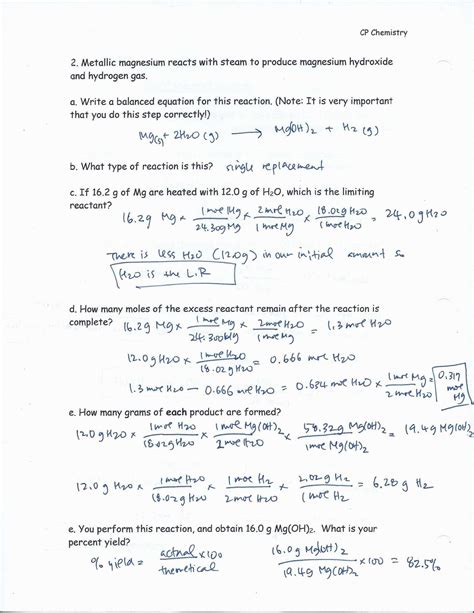 CP Chemistry
2. Metallic magnesium reacts with steam to produce magnesium hydroxide
and hydrogen gas.
a. Write a balanced equation for this reaction. (Note: It is very important
that you do this step correctly!)
Mg(s) + 2H2O (g) → Mg(OH)2 + H2 (g)
b. What type of reaction is this? single replacement
c. If 16.2 g of Mg are heated with 12.0 g of H2O, which is the limiting
reactant?
16.2g Mg x 1 mol Mg / 24.30g Mg x 2 mol H2O / 1 mol Mg x 18.02g H2O / 1 mol H2O = 24.0g H2O
There is less H2O (12.0g) in our initial amount so
H2O is the L.R
d. How many moles of the excess reactant remain after the reaction is
complete? 16.2g Mg x 1 mol Mg / 24.30g Mg x 2 mol H2O / 1 mol Mg = 1.3 mol H2O
12.0g H2O x 1 mol H2O / 18.02g H2O = 0.666 mol H2O
1.3 mol H2O - 0.666 mol H2O = 0.634 mol H2O x 1 mol Mg / 2 mol H2O = 0.317 mol Mg
e. How many grams of each product are formed?
12.0g H2O x 1 mol H2O / 18.02g H2O x 1 mol Mg(OH)2 / 2 mol H2O x 58.32g Mg(OH)2 / 1 mol Mg(OH)2 = 19.4g Mg(OH)2
12.0g H2O x 1 mol H2O / 18.02g H2O x 1 mol H2 / 2 mol H2O x 2.02g H2 / 1 mol H2 = 6.28g H2
e. You perform this reaction, and obtain 16.0 g Mg(OH)2. What is your
percent yield?
% yield = actual / theoretical x100 16.0g Mg(OH)2 / 19.4g Mg(OH)2 x100 = 82.5%